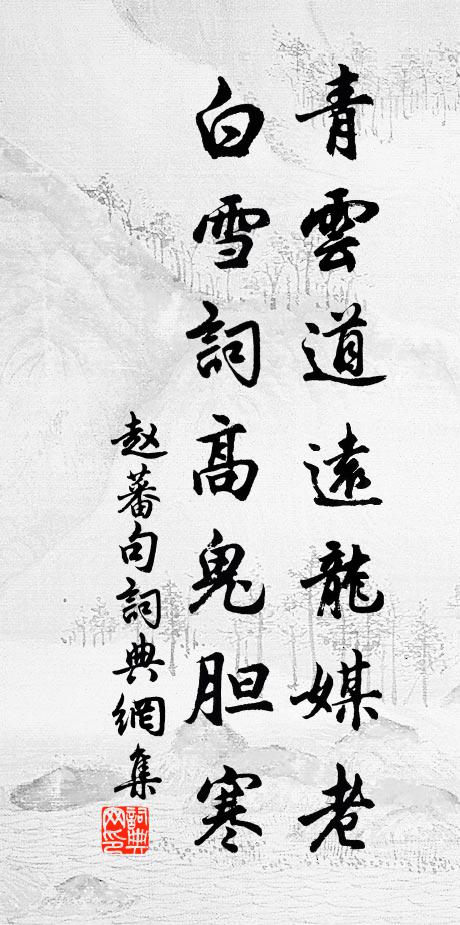 青雲道遠龍媒老
白雪詞高鬼胆寒
赵蕃句詞典網集
詞典
网印